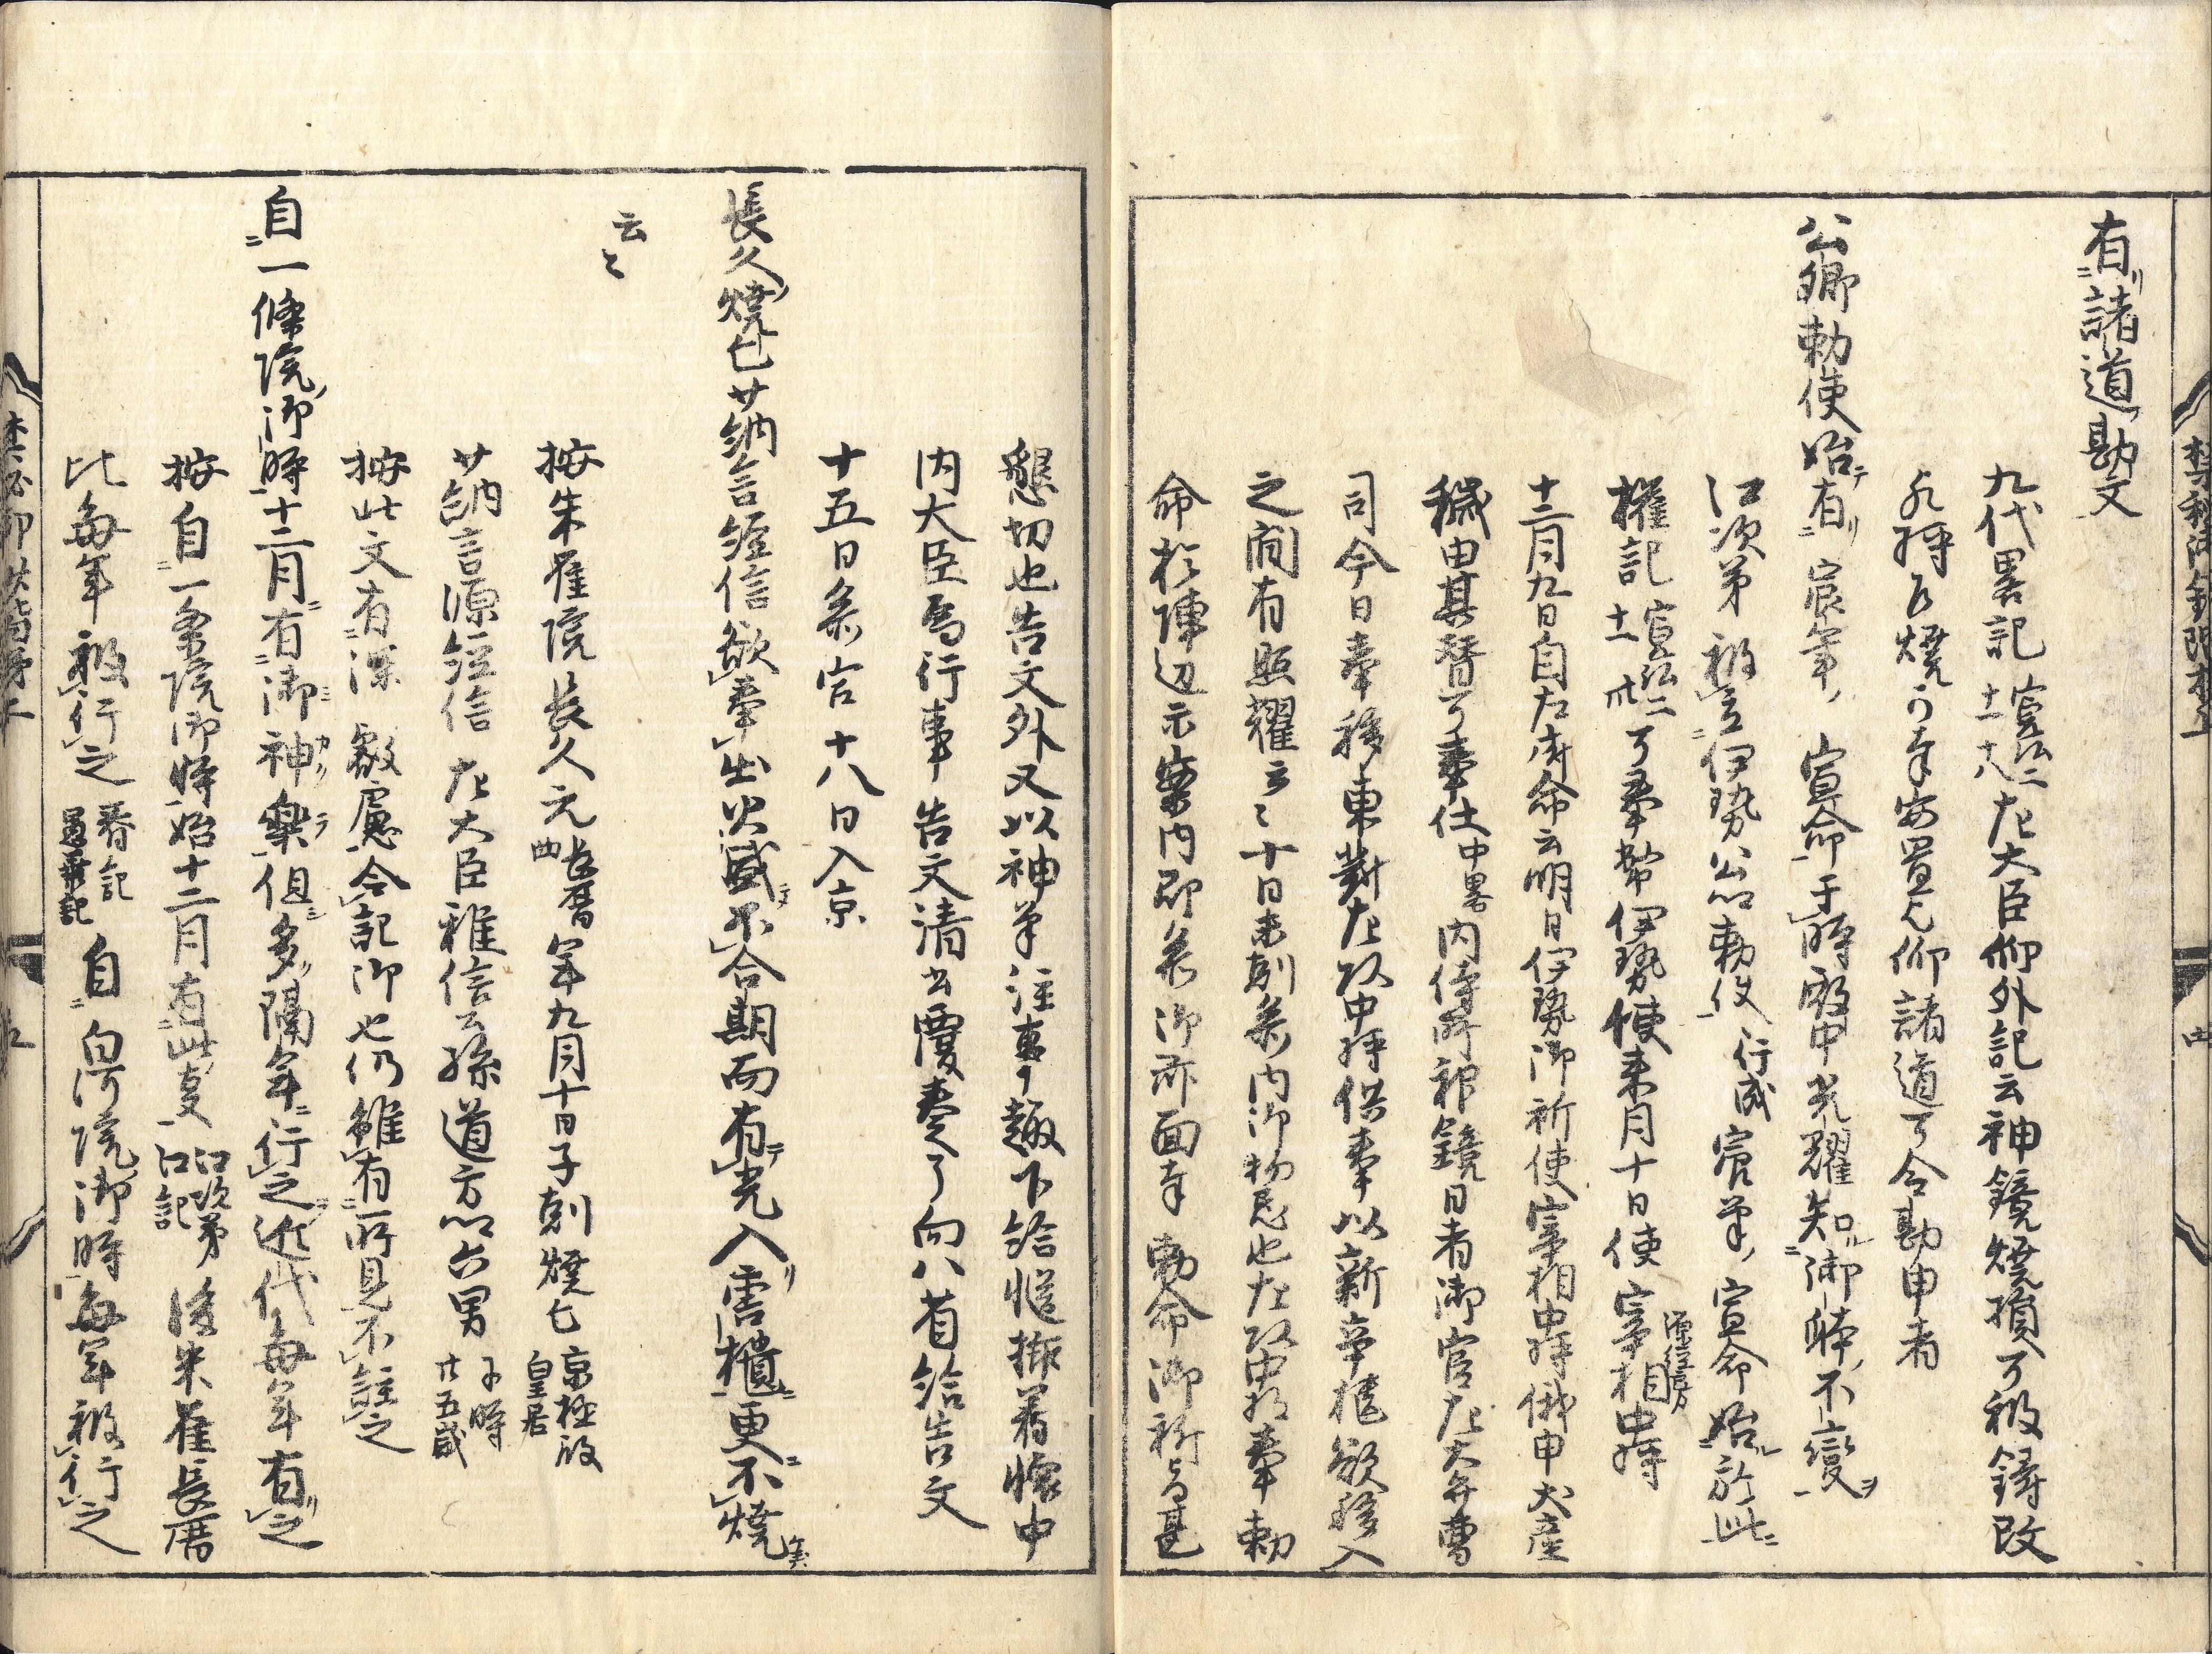 有諸道勘文
九代畧記寛弘二十一十八左大臣仰外記云神鏡焼損可被鋳改
乍焼可奉安置乎仰諸道可令勘申者
公卿勅使始有宸筆宣命于時殿中光耀知御躰不變
江次第被立伊勢公卿勅使行成宸筆宣命始於此
權記寛弘二十一可奉幣伊勢使来月十日使宰相中将
十二月九日自左府命云明日伊勢御祈使宰相中将俄申犬産
穢由其替可奉仕中畧内侍所神鏡日者御官左大弁曹
司今日奉移東對左頭中将供奉以新辛櫃欲移入
之間有照耀云々十日未刻参内御物忌也左頭中将奉勅
命於陣辺示案内即参御前面奉勅命御祈旨甚
懇切也告文外又以神筆注事趣下給慥挿著懐中
内大臣為行事告文清書覆奏了向八省給告文
十五日参宮十八日入京
長久焼亡少納言經信欲奉出火盛不合期而有光入唐櫃更不焼
云々
按朱雀院長久元長暦四年九月十日子刻焼亡京極殿皇居
少納言源經信左大臣雅信公孫道方卿六男于時廿五歳
按此文有深叡慮令記御也仍雖有所見不註之
自一條院御時十二月有御神樂但多隔年行之近代毎年有之
按自一条院御時始十二月有此事江次第江記後朱雀長暦
比毎年被行之春記自白河院御時毎年被行之